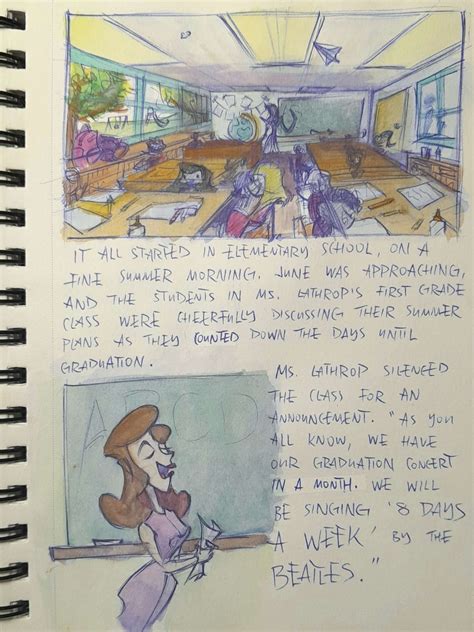 IT ALL STARTED IN ELEMENTARY SCHOOL, ON A
FINE SUMMER MORNING. JUNE WAS APPROACHING,
AND THE STUDENTS IN MS. LATHROP'S FIRST GRADE
CLASS WERE CHEERFULLY DISCUSSING THEIR SUMMER
PLANS AS THEY COUNTED DOWN THE DAYS UNTIL
GRADUATION.
MS. LATHROP SILENCED
THE CLASS FOR AN
ANNOUNCEMENT. "AS YOU
ALL KNOW, WE HAVE
OUR GRADUATION CONCERT
IN A MONTH. WE WILL
BE SINGING '8 DAYS
A WEEK' BY THE
BEATLES."
ABCD